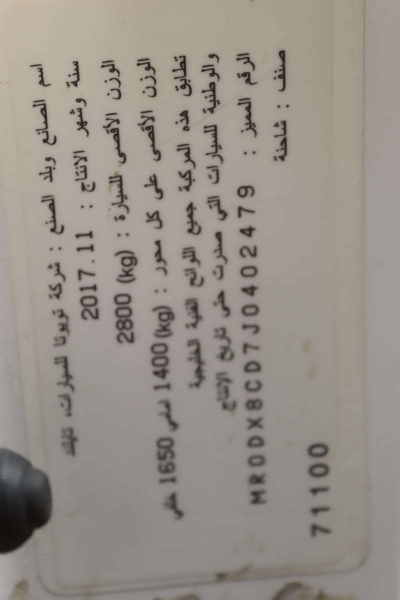 اسم الصانع وبلد الصنع : شركة تويوتا للسيارات، تايلاند
سنة وشهر الانتاج : 2017.11
الوزن الأقصى للسيارة : 2800 (kg)
الوزن الأقصى على كل محور : 1400(kg) امامي 1650 خلفي
تطابق هذه المركبة جميع اللوائح الفنية الخليجية
والوطنية للسيارات التي صدرت حتى تاريخ الإنتاج
الرقم المميز : MR0DX8CD7J0402479
صنف : شاحنة
71100